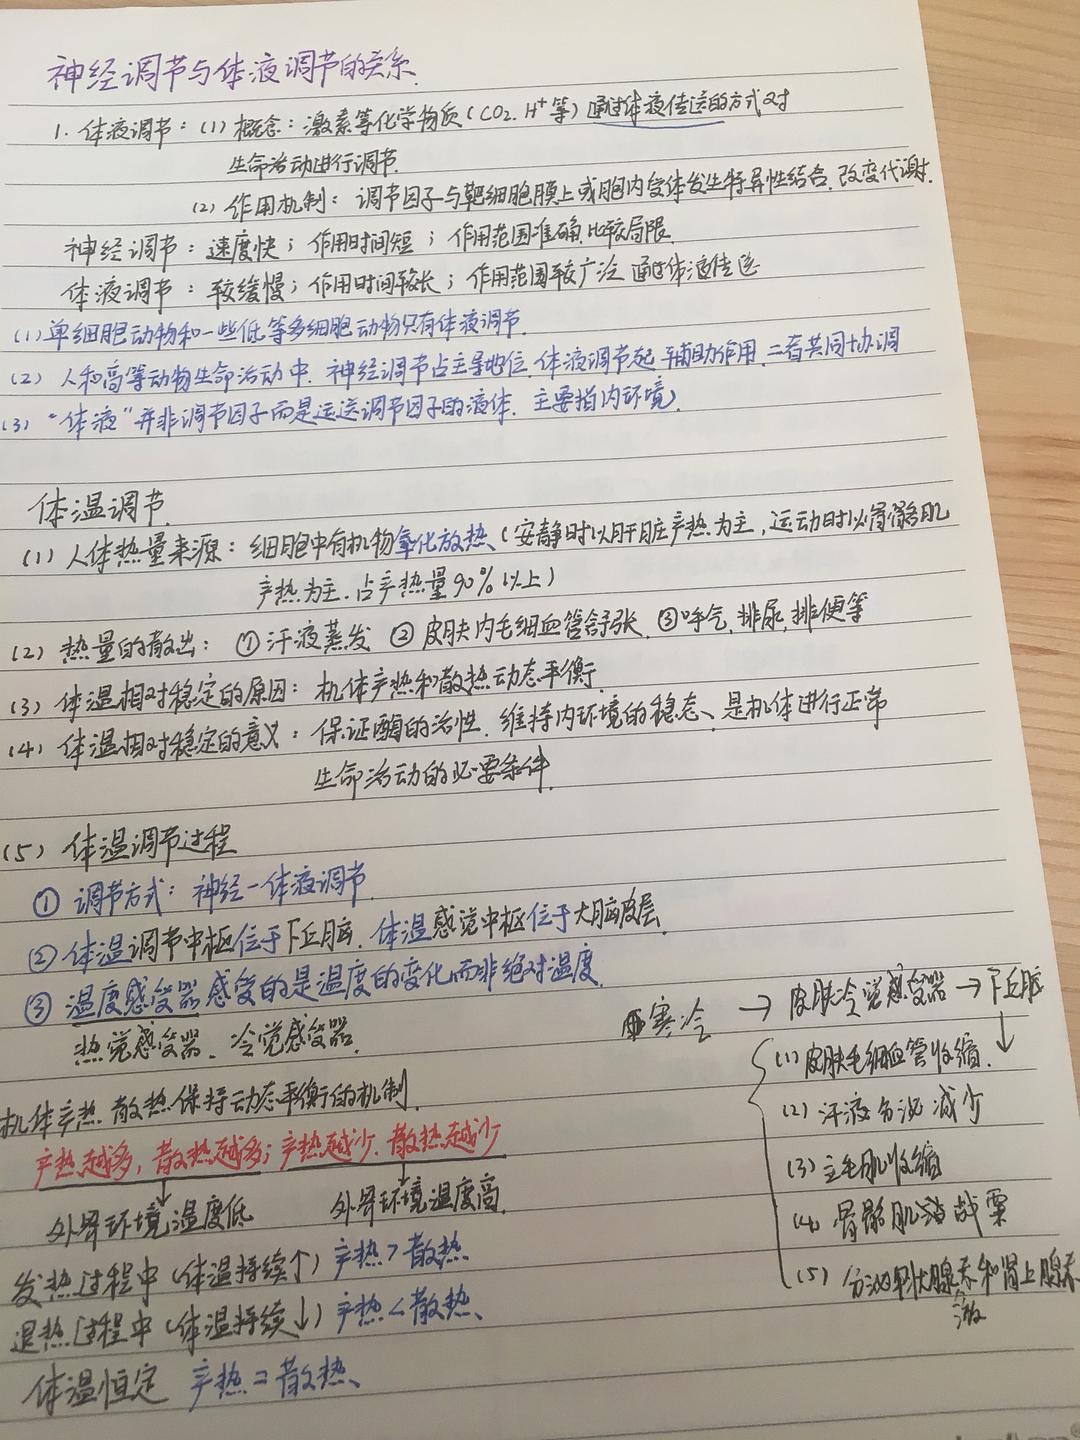 神经调节与体液调节的关系.
1. 体液调节：(1) 概念：激素等化学物质(CO2. H+等) 通过体液传送的方式对
生命活动进行调节.
(2) 作用机制：调节因子与靶细胞膜上或胞内受体发生特异性结合.改变代谢.
神经调节：速度快；作用时间短；作用范围准确.比较局限.
体液调节：较缓慢；作用时间较长；作用范围较广泛 通过体液传送
(1) 单细胞动物和一些低等多细胞动物只有体液调节.
(2) 人和高等动物生命活动中.神经调节占主导地位.体液调节起辅助作用.二者共同协调
(3) “体液”并非调节因子而是运送调节因子的液体.主要指内环境).
体温调节.
(1) 人体热量来源：细胞中有机物氧化放热、(安静时以肝脏产热为主，运动时以骨骼肌
产热为主.占产热量90%以上)
(2) 热量的散出：①汗液蒸发 ②皮肤内毛细血管舒张.③呼气.排尿.排便等
(3) 体温相对稳定的原因：机体产热和散热动态平衡.
(4) 体温相对稳定的意义：保证酶的活性.维持内环境的稳态、是机体进行正常
生命活动的必要条件.
(5) 体温调节过程
① 调节方式：神经一体液调节.
② 体温调节中枢位于下丘脑.体温感觉中枢位于大脑皮层.
③ 温度感受器感受的是温度的变化而非绝对温度.
热觉感受器、冷觉感受器.
寒冷 → 皮肤冷觉感受器 → 下丘脑
↓
(1) 皮肤毛细血管收缩.
(2) 汗液分泌减少
(3) 立毛肌收缩
(4) 骨骼肌战栗
(5) 分泌甲状腺激素和肾上腺素
机体产热.散热保持动态平衡的机制.
产热越多，散热越多；产热越少.散热越少
↓ ↓
外界环境温度低 外界环境温度高.
发热过程中(体温持续↑) 产热>散热.
退热过程中(体温持续↓) 产热<散热、
体温恒定 产热=散热、